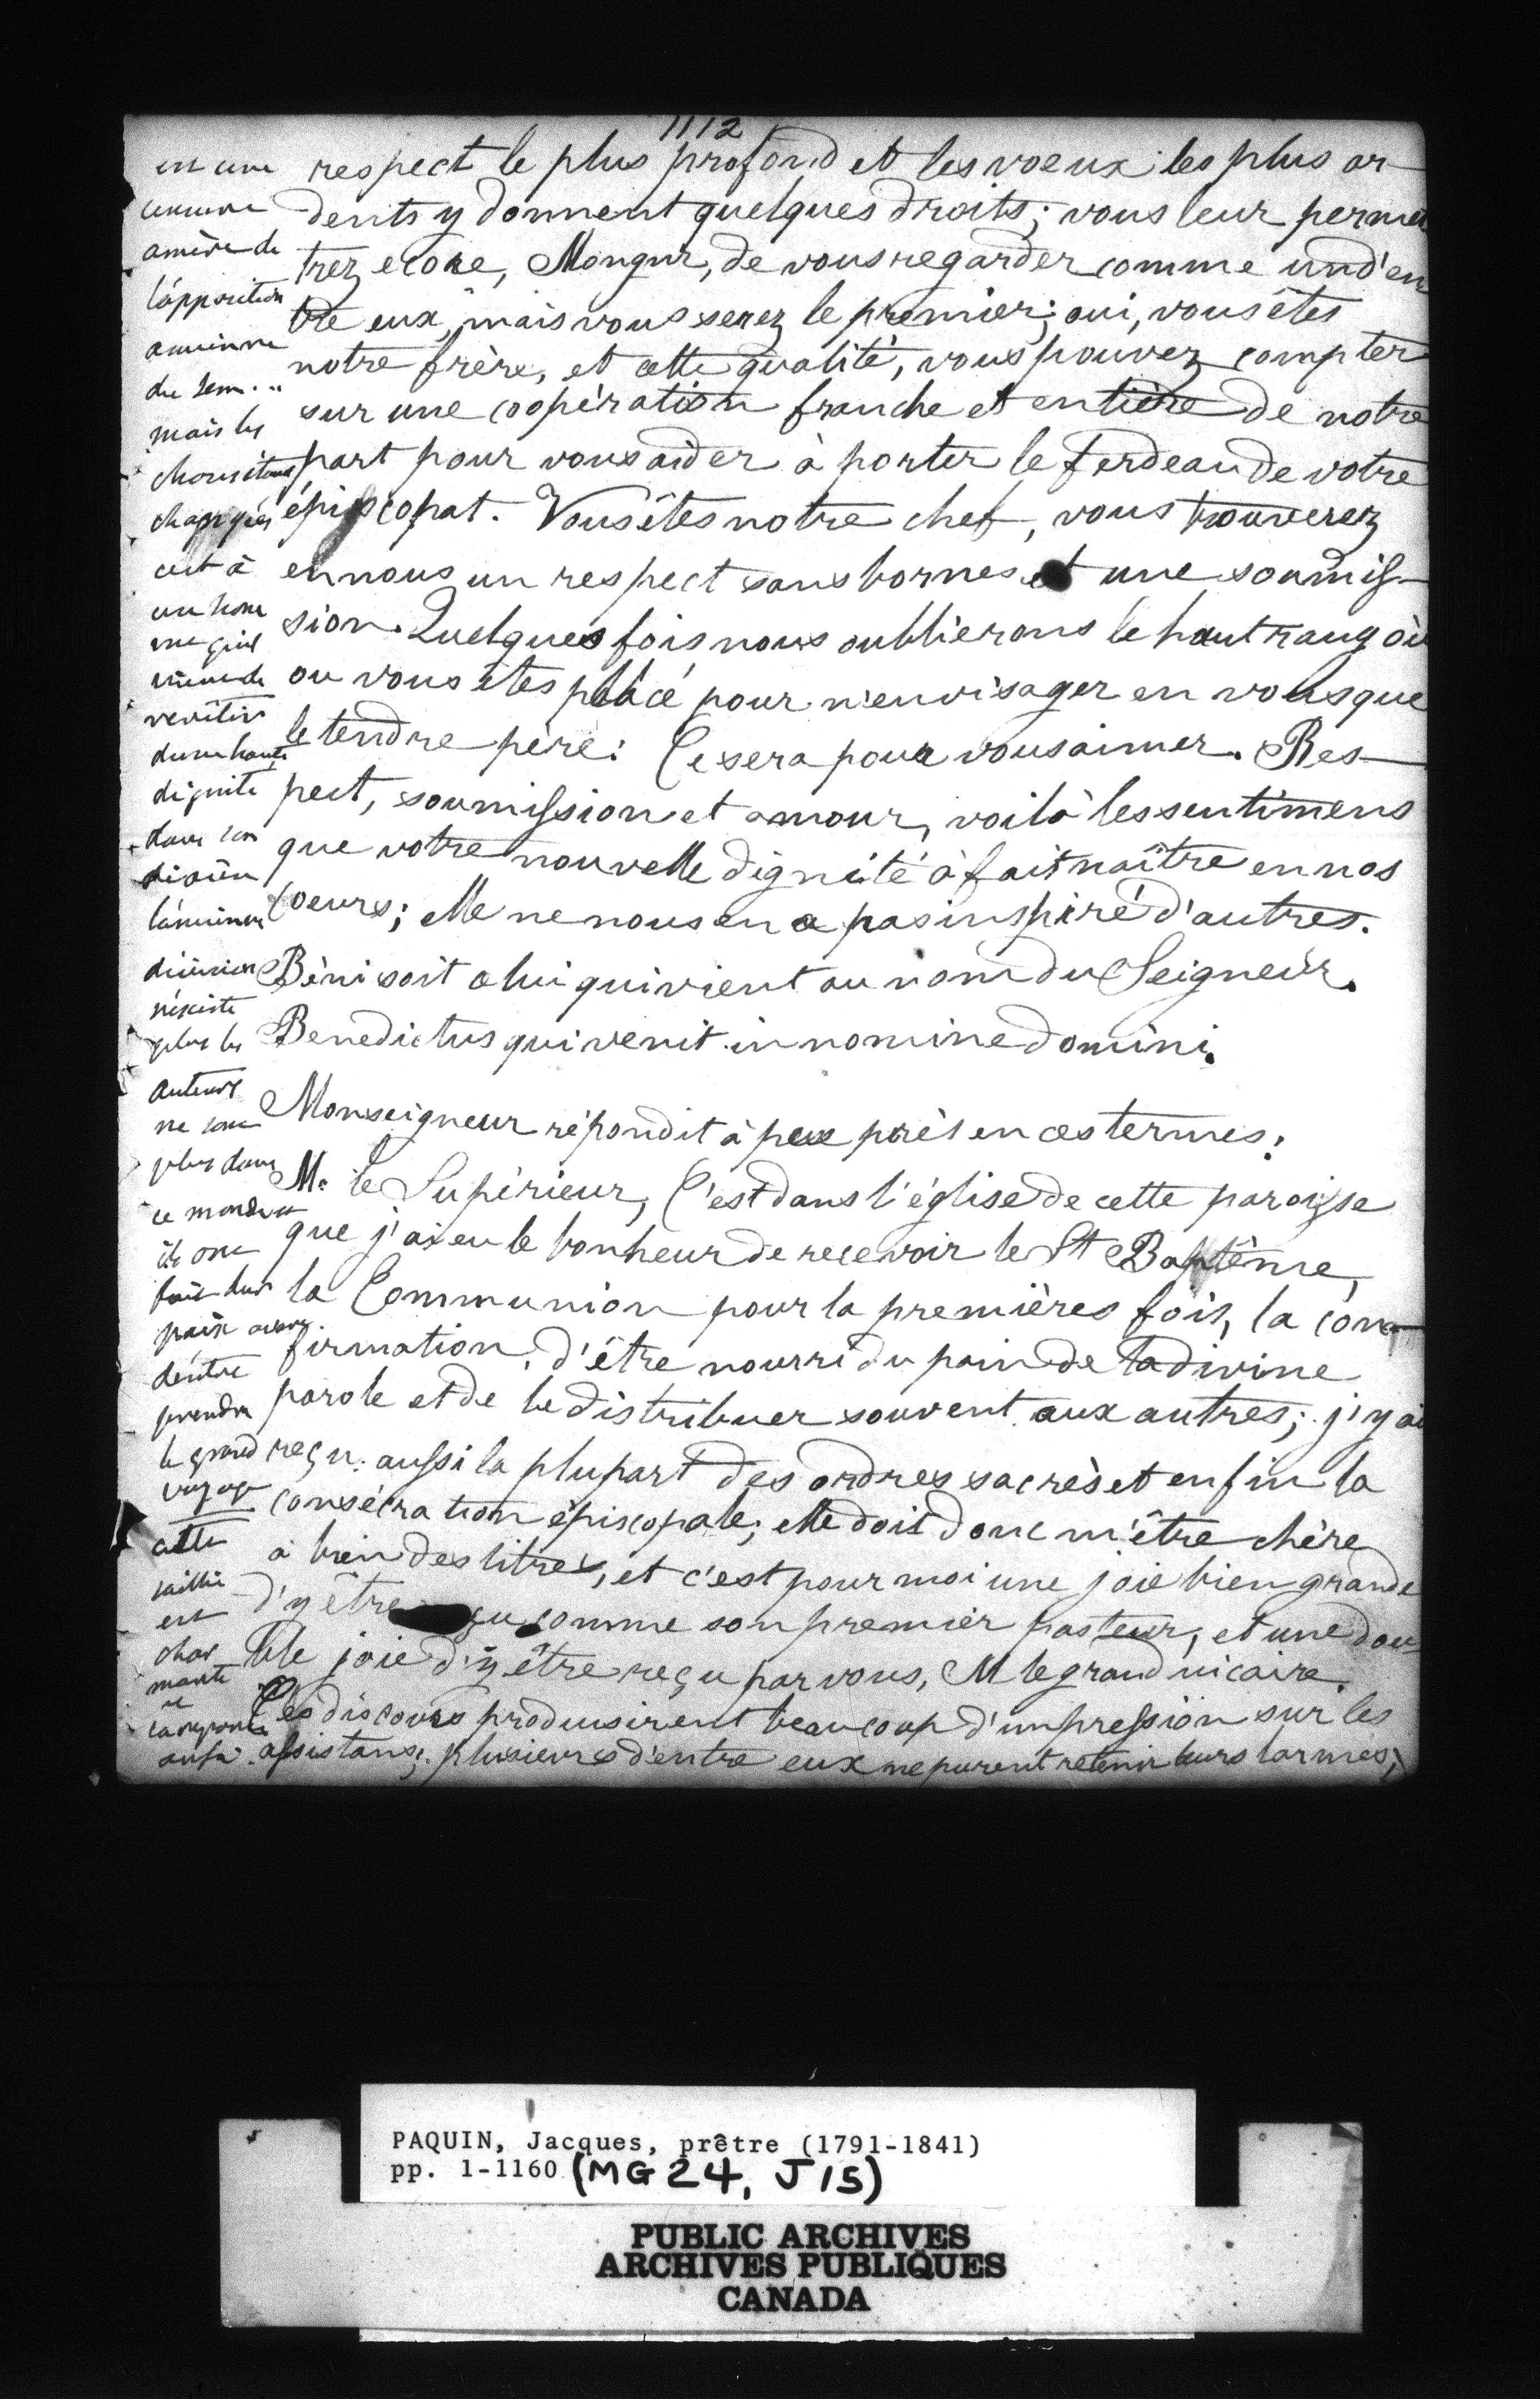 1112
respect le plus profond et les voeux les plus ar-
dents y donnent quelques droits; vous leur permet
trez ecore, Mongnr, de vous regarder comme un d'en
tre eux, mais vous serez le premier; oui, vous êtes
notre frère, et cette qualité, vous pouvez compter
sur une coopération franche et entière de notre
part pour vous aider à porter le ferdeau de votre
épiscopat. Vous êtes notre chef, vous trouverez
en nous un respect sans bornes et une soumis-
sion. Quelques fois nous oublierons le haut rang où
ou vous êtes placé pour n'envisager en vous que
le tendre père: Ce sera pour vous aimer. Res-
pect, soumission et amour, voilà les sentimens
que votre nouvelle dignité à fait naître en nos
coeurs; elle ne nous en a pas inspiré d'autres.
Béni soit celui qui vient au nom du Seigneur.
Benedictus qui venit in nomine domini.
Monseigneur répondit à peu près en ces termes:
Mr le Supérieur, C'est dans l'église de cette paroisse
que j'ai eu le bonheur de recevoir le St Baptême,
la Communion pour la premières fois, la con-
firmation, d'être nourri du pain de la divine
parole et de le distribuer souvent aux autres; j'y ai
reçu aussi la plupart des ordres sacrés et enfin la
consécration épiscopale; elle doit donc m'être chère
à bien des titres, et c'est pour moi une joie bien grande
d'y être reçu comme son premier pasteur, et une dou-
ble joie d'y être reçu par vous, M le grand vicaire.
Ces discours produisirent beaucoup d'impression sur les
assistans; plusieurs d'entre eux ne purent retenir leurs larmes;
est une
censure
amère de
l'apposition
ancienne
du sem...
mais les
changées
cest à
même de
revêtir
dune haute
dignité
dans son
n'existe
plus les
auteurs
ne sont
plus dans
ce monde et
ils ont
fait leur
paix avant
dentre
prendre
le grand
voyage
cette
saillie
est
char
mante
aussi
PAQUIN, Jacques, prêtre (1791-1841)
pp. 1-1160 (MG 24, J 15)
PUBLIC ARCHIVES
ARCHIVES PUBLIQUES
CANADA